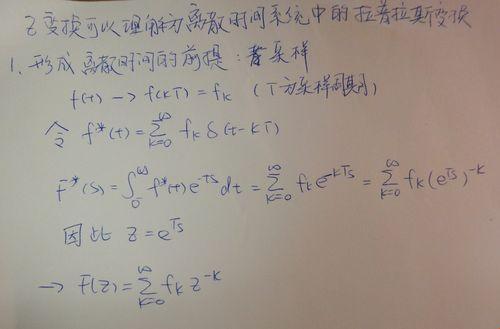 Z变换可以理解为离散时间系统中的拉普拉斯变换
1、形成离散时间的前提:采样
f(t) → f(kT) = fk (T为采样周期)
令 f*(t) = ∑_{k=0}^{∞} fk δ(t-kT)
F*(s) = ∫_0^∞ f*(t) e^{-Ts} dt = ∑_{k=0}^{∞} fk e^{-kTs} = ∑_{k=0}^{∞} fk (e^{Ts})^{-k}
因此 z = e^{Ts}
→ F(z) = ∑_{k=0}^{∞} fk z^{-k}